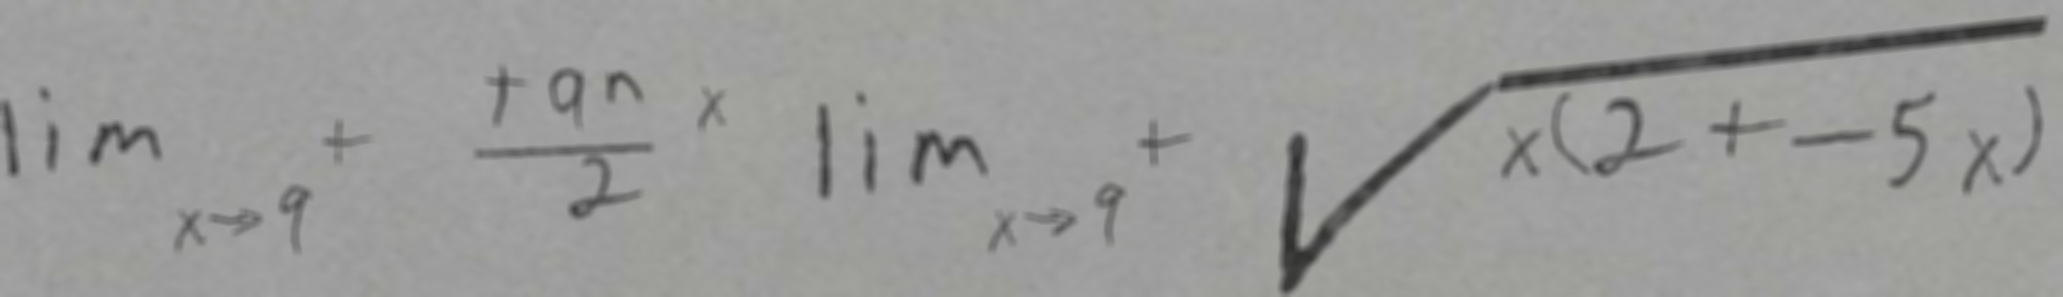 \lim_{x \to 9^+} \frac{\tan}{2} x \lim_{x \to 9^+} \sqrt{x(2+-5x)}